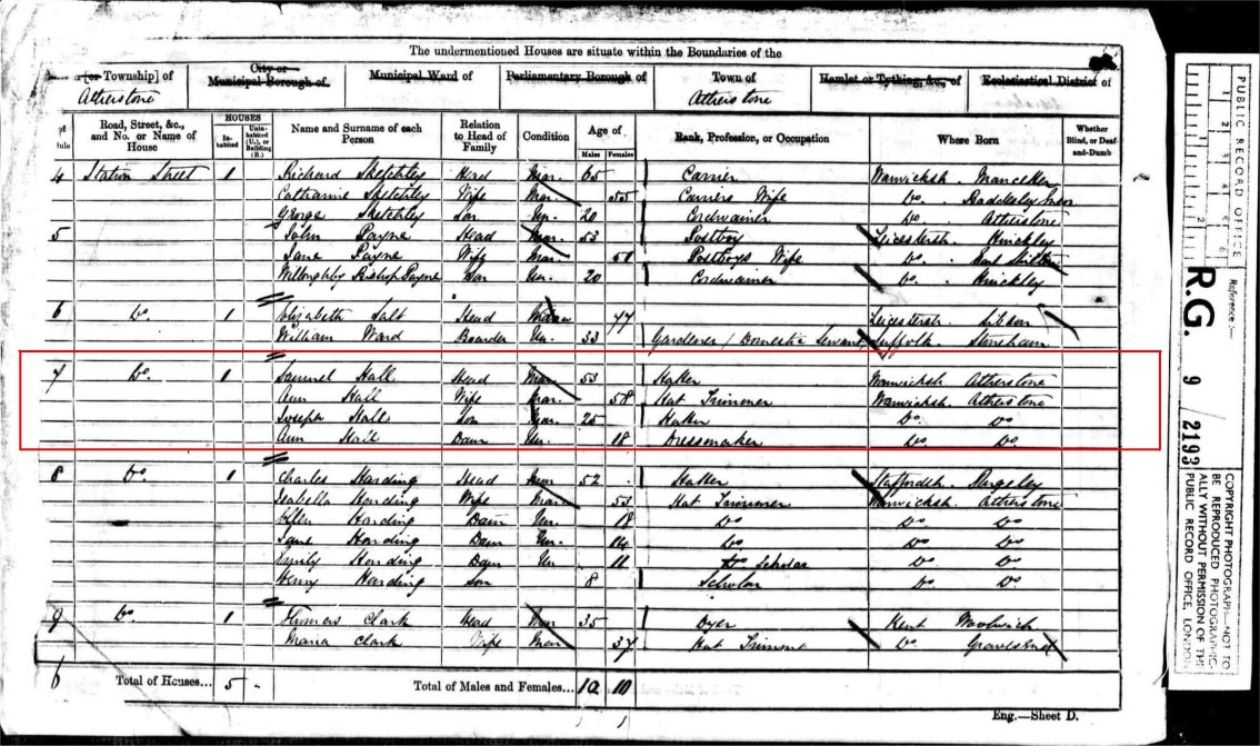 The undermentioned Houses are situate within the Boundaries of the
[or Township] of City or Municipal Borough of Municipal Ward of Parliamentary Borough of Town of Hamlet or Tything, &c., of Ecclesiastical District of
Atherstone Atherstone
Road, Street, &c., and No. or Name of House HOUSES In-habited Unin-habited (U.), or Building (B.) Name and Surname of each Person Relation to Head of Family Condition Age of Males Females Rank, Profession, or Occupation Where Born Whether Blind, or Deaf-and-Dumb
4 Station Street 1 Richard Sketchley Head Mar. 65 Carrier Warwicksh.
Catharine Sketchley Wife Mar. 55 Carriers Wife Do.
George Sketchley Son Un. 20 Cordwainer Do. Atherstone
5 John Payne Head Mar. 53 Postboy Leicestersh. Hinckley
Jane Payne Wife Mar. Postboys Wife Do. Earl Shilton
Willoughby Bishop Payne Son Un. 20 Cordwainer Do. Hinckley
6 Do. 1 Elizabeth Salt Head 77 Leicestersh.
William Ward Boarder Un. 33 Gardener / Domestic Servant Suffolk Stoneham
7 Do. 1 Samuel Hall Head Mar. 53 Hatter Warwicksh Atherstone
Ann Hall Wife Mar. 58 Hat Trimmer Warwicksh. Atherstone
Joseph Hall Son 25 Hatter Do Do
Ann Hall Daur Un. 18 Dressmaker Do Do
8 Do. 1 Charles Harding Head Mar 52 Hatter Staffordsh. Rugeley
Isabella Harding Wife Mar 53 Hat Trimmer Warwicksh. Atherstone
Ellen Harding Daur Un. 18 Do Do Do
Jane Harding Daur Un. 14 Do Do Do
Emily Harding Daur Un 11 Scholar Do Do
Henry Harding Son 8 Scholar Do Do
9 Do. 1 Thomas Clark Head Mar 35 Dyer Kent Woolwich
Maria Clark Wife Mar 37 Hat Trimmer Do. Gravesend
6 Total of Houses... 5 Total of Males and Females... 10 10
Eng.—Sheet D.
PUBLIC RECORD OFFICE
Reference:—
R.G. 9 2193
COPYRIGHT PHOTOGRAPH—NOT TO
BE REPRODUCED PHOTOGRAPHIC-
ALLY WITHOUT PERMISSION OF THE
PUBLIC RECORD OFFICE, LONDON